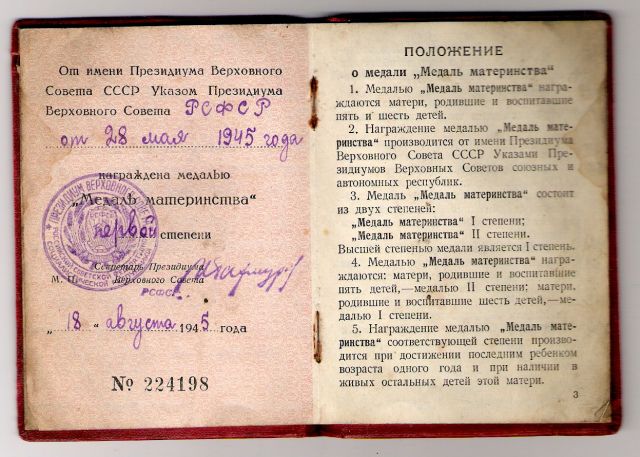 От имени Президиума Верховного
Совета СССР Указом Президиума
Верховного Совета РСФСР
от 28 мая 1945 года
награждена медалью
„Медаль материнства“
первой степени
Секретарь Президиума
М. П. Верховного Совета
РСФСР
„ 18 “ августа 1945 года
№ 224198
ПОЛОЖЕНИЕ
о медали „Медаль материнства“
1. Медалью „Медаль материнства“ награ-
ждаются матери, родившие и воспитавшие
пять и шесть детей.
2. Награждение медалью „Медаль мате-
ринства“ производится от имени Президиума
Верховного Совета СССР Указами Пре-
зидиумов Верховных Советов союзных и
автономных республик.
3. Медаль „Медаль материнства“ состоит
из двух степеней:
„Медаль материнства“ I степени;
„Медаль материнства“ II степени.
Высшей степенью медали является I степень.
4. Медалью „Медаль материнства“ награ-
ждаются: матери, родившие и воспитавшие
пять детей,—медалью II степени; матери,
родившие и воспитавшие шесть детей,—ме-
далью I степени.
5. Награждение медалью „Медаль мате-
ринства“ соответствующей степени произво-
дится при достижении последним ребенком
возраста одного года и при наличии в
живых остальных детей этой матери.
3